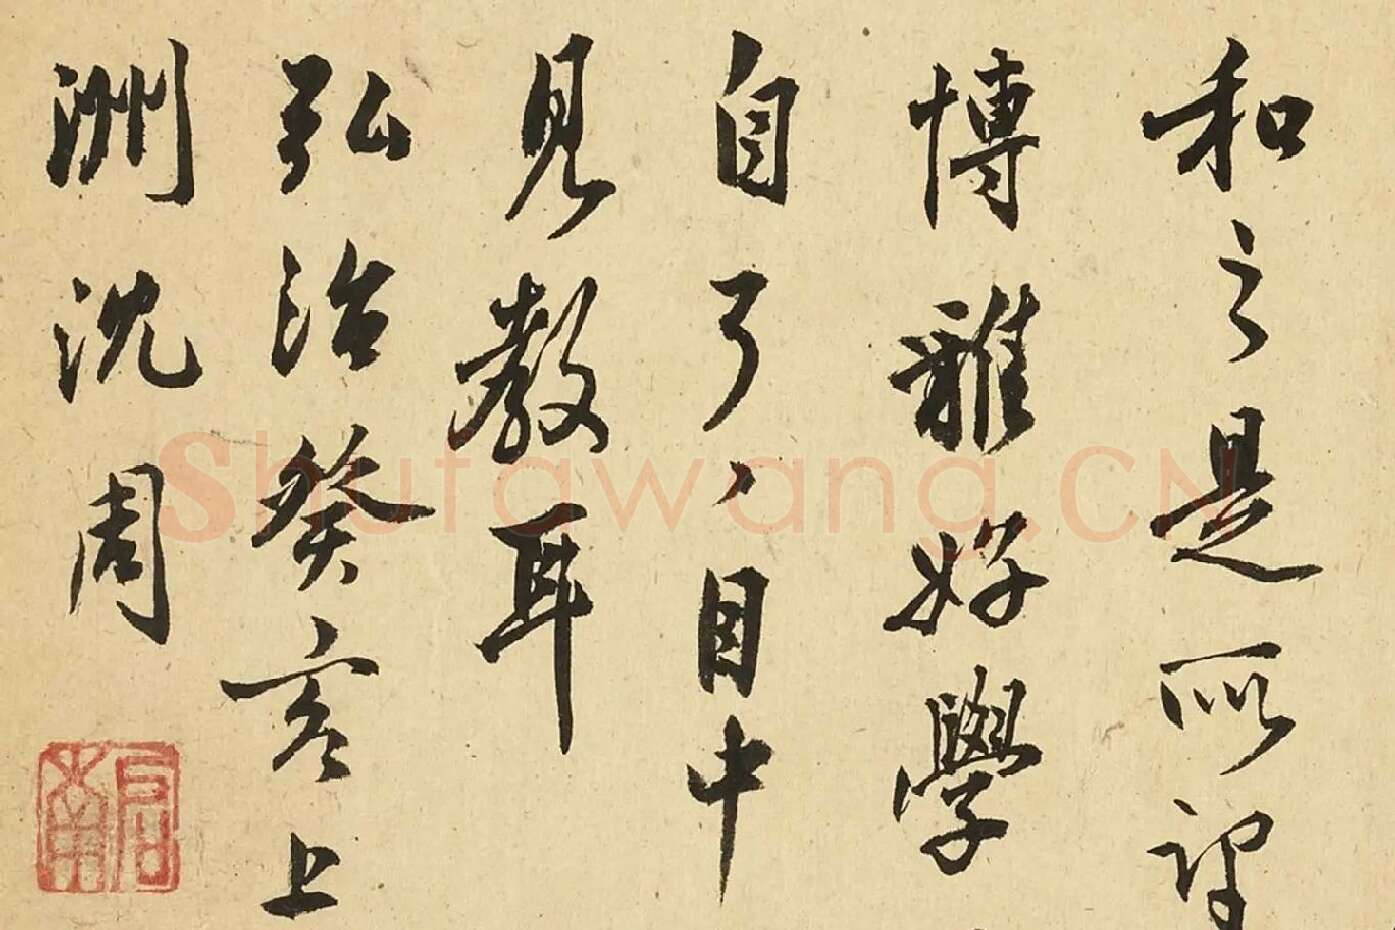 和之是所望
博雅好學
自了了目中
見教耳
弘治癸亥上
洲沈周
啟南
Shufawang.CN